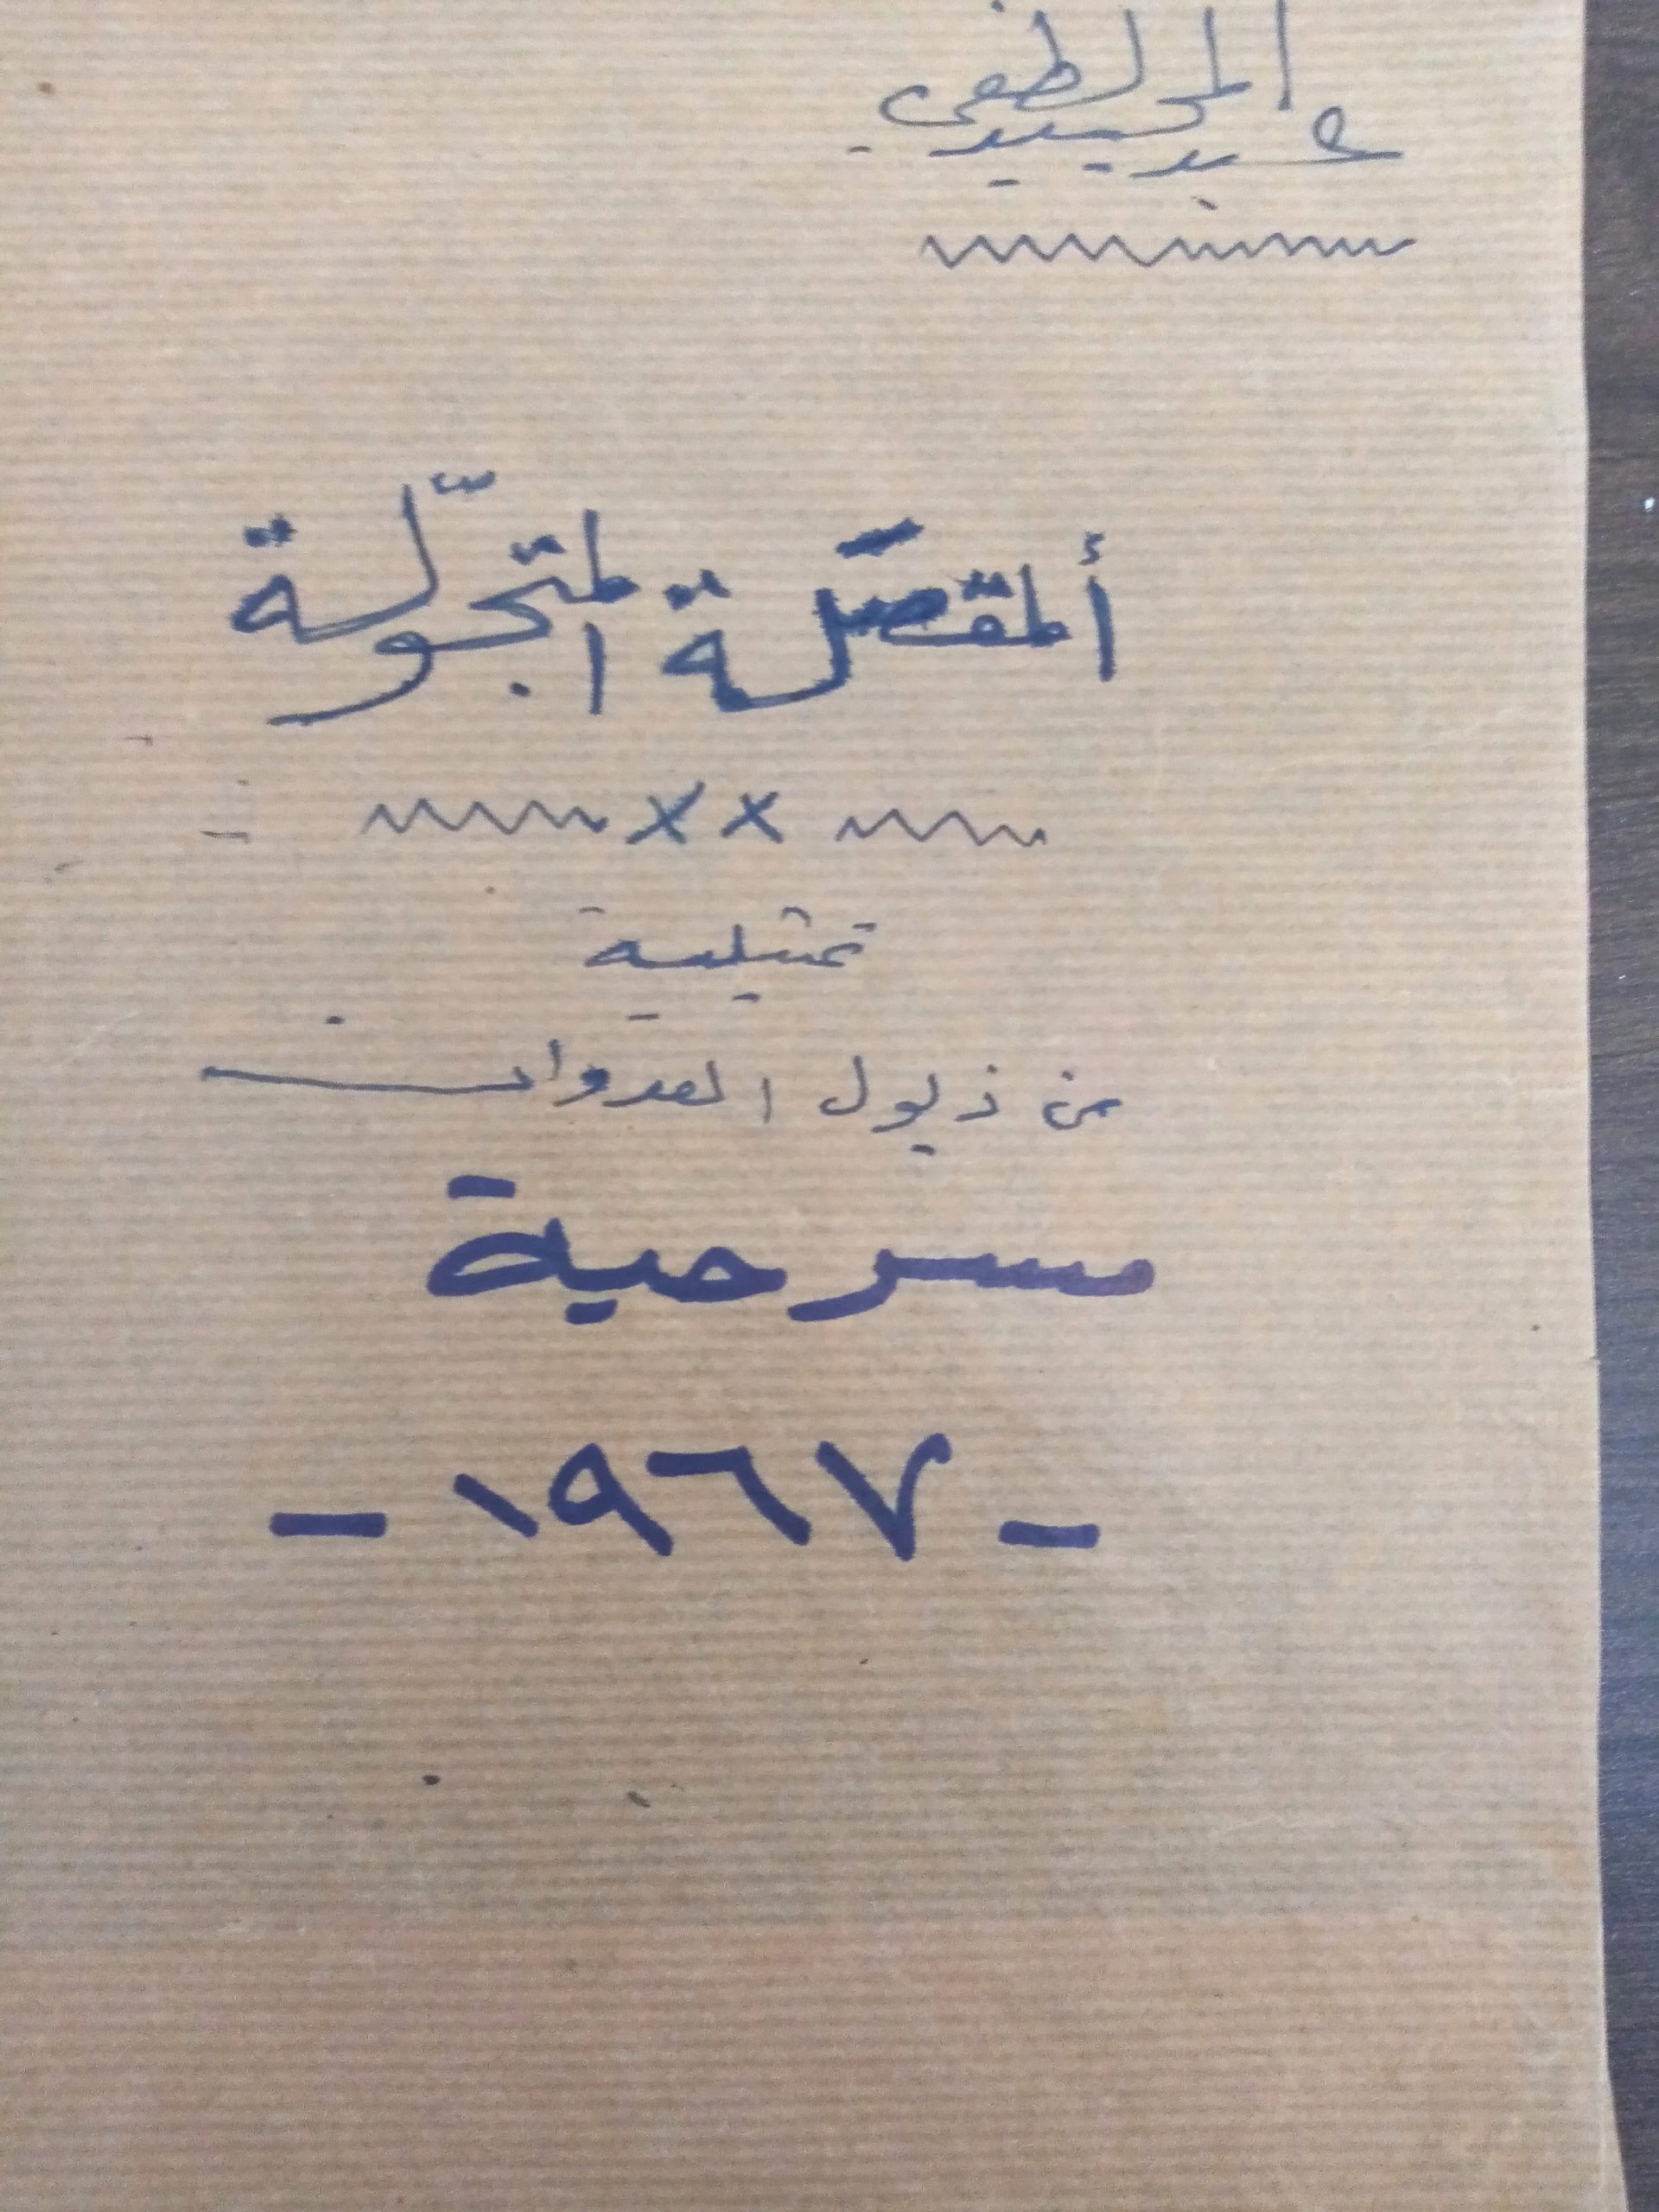 عبد المجيد لطفي
ألمقصَلة المتجوّلة
× ×
تمثيلية
من ذيول العدوان
مسرحية
- ١٩٦٧ -